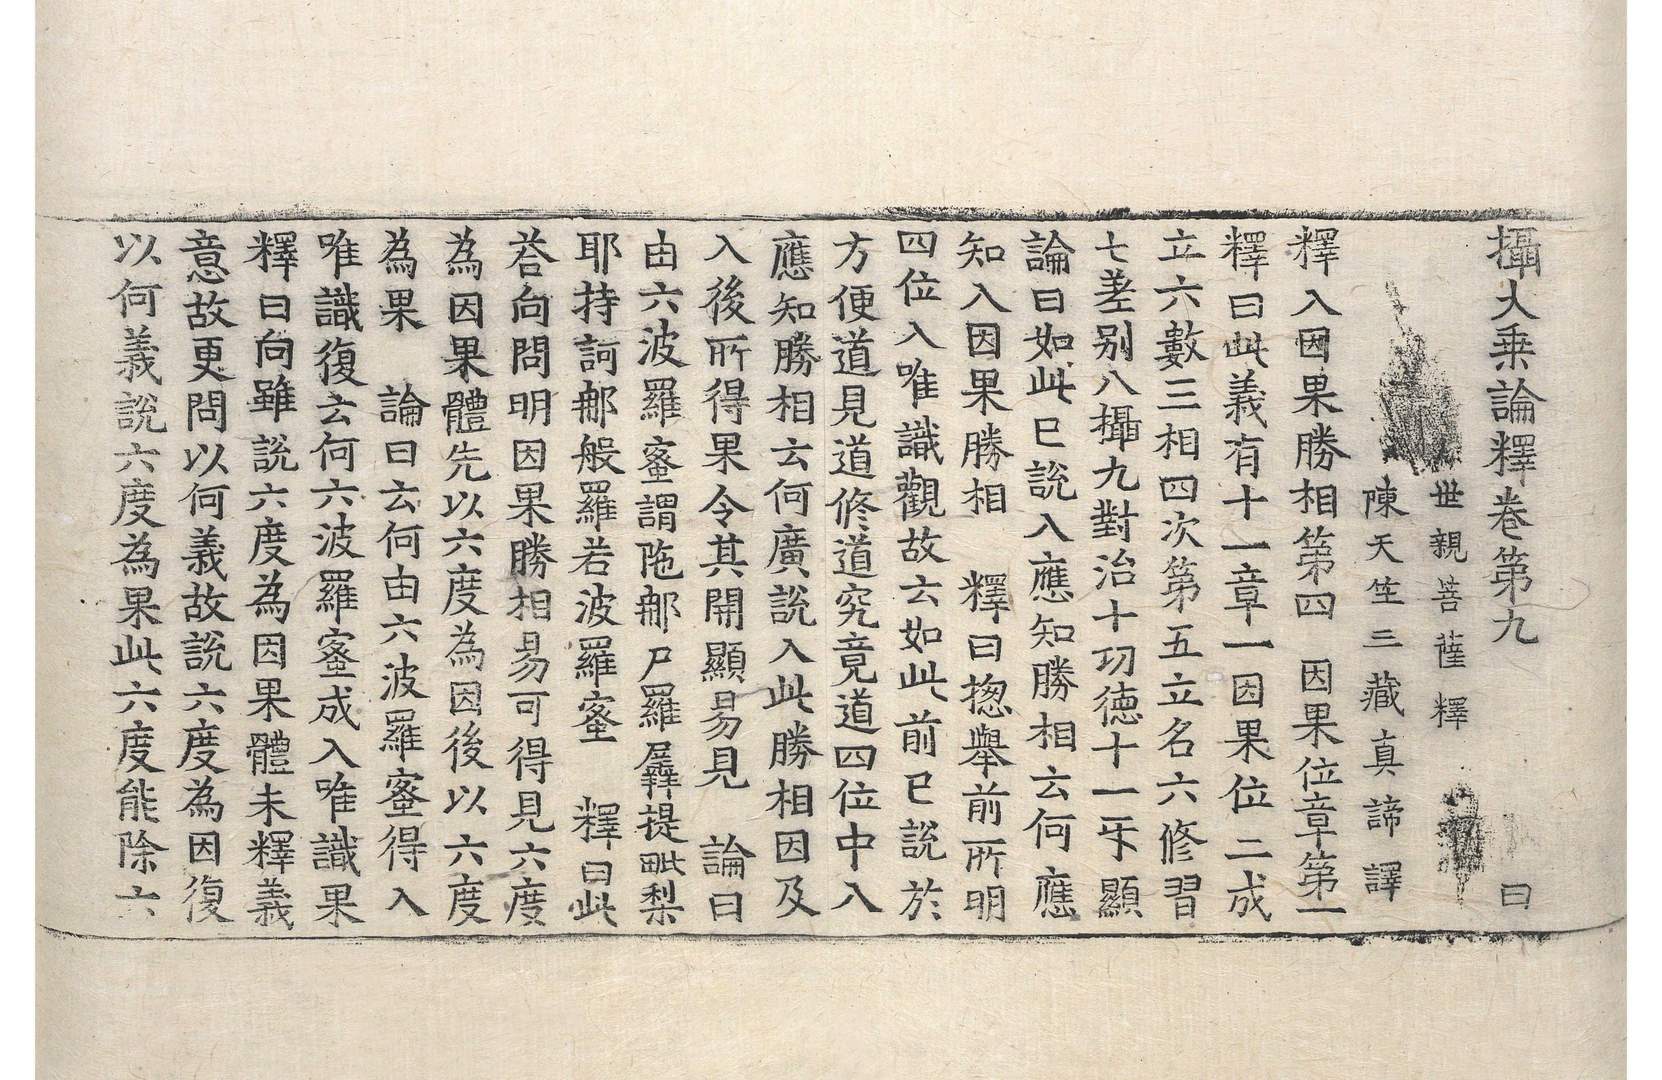 攝大乘論釋卷第九 曰
世親菩薩釋
陳天竺三藏真諦譯
釋入因果勝相第四 因果位章第一
釋曰此義有十一章一因果位二成
立六數三相四次第五立名六修習
七差別八攝九對治十功德十一互顯
論曰如此已說入應知勝相云何應
知入因果勝相 釋曰揔舉前所明
四位入唯識觀故云如此前已說於
方便道見道修道究竟道四位中入
應知勝相云何廣說入此勝相因及
入後所得果令其開顯易見 論曰
由六波羅蜜謂陁那尸羅羼提毗梨
耶持訶那般羅若波羅蜜 釋曰此
荅向問明因果勝相易可得見六度
為因果體先以六度為因後以六度
為果 論曰云何由六波羅蜜得入
唯識復云何六波羅蜜成入唯識果
釋曰向雖說六度為因果體未釋義
意故更問以何義故說六度為因復
以何義說六度為果此六度能除六